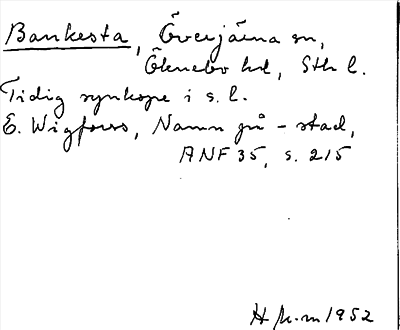 Bankesta, Överjärna sn,
Öknebo hd, Sth l.
Tidig synkope i s. l.
E. Wigforss, Namn på - stad,
ANF 35, s. 215
H 1952